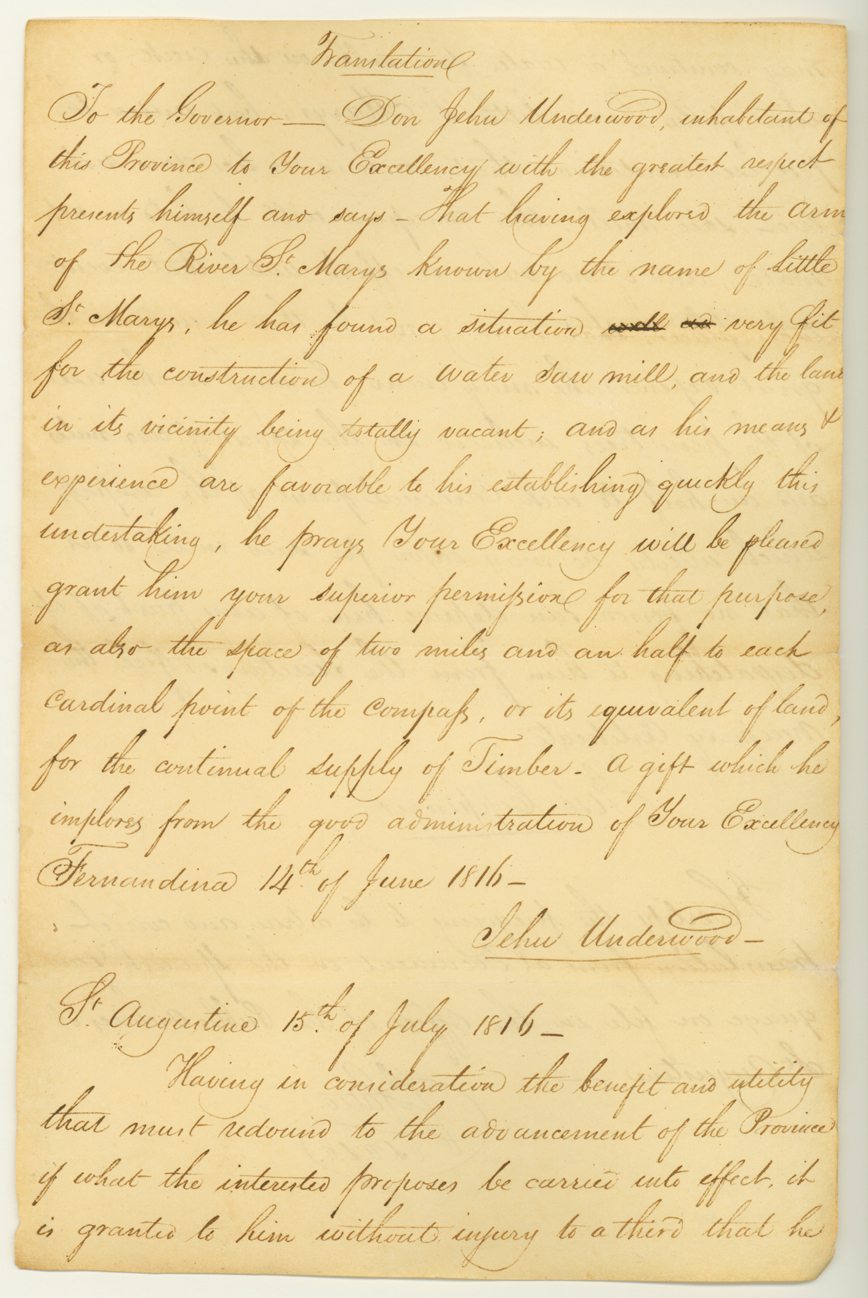 Translation
To the Governor — Don Jehu Underwood, inhabitant of
this Province to Your Excellency with the greatest respect
presents himself and says – That having explored the arm
of the River St. Marys known by the name of Little
St. Marys, he has found a situation well as very fit
for the construction of a water saw mill, and the land
in its vicinity being totally vacant; and as his means &
experience are favorable to his establishing quickly this
undertaking, he prays Your Excellency will be pleased
grant him your superior permission for that purpose,
as also the space of two miles and an half to each
cardinal point of the compass, or its equivalent of land,
for the continual supply of Timber – A gift which he
implores from the good administration of Your Excellency
Fernandina 14th. of June 1816 –
Jehu Underwood –
St. Augustine 15th. of July 1816 –
Having in consideration the benefit and utility
that must redound to the advancement of the Province
if what the interested proposes be carried into effect, it
is granted to him without injury to a third that he